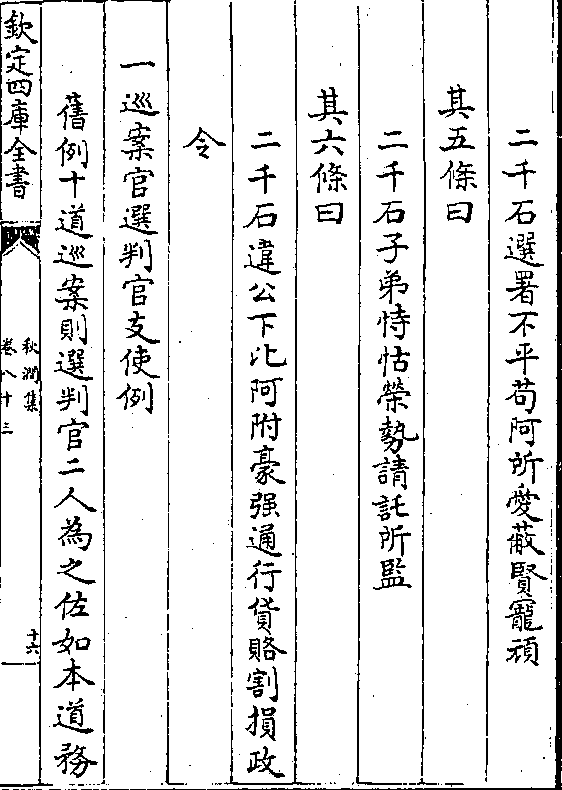 二千石選署不平苟阿所愛蔽賢寵頑
其五條曰
二千石子弟恃怙榮勢請託所監
其六條曰
二千石違公下比阿附豪强通行貨賂割損政
令
一巡案官選判官支使例
舊例十道巡案則選判官二人為之佐如本道務
欽定四庫全書
秋澗集
卷八十三
十六